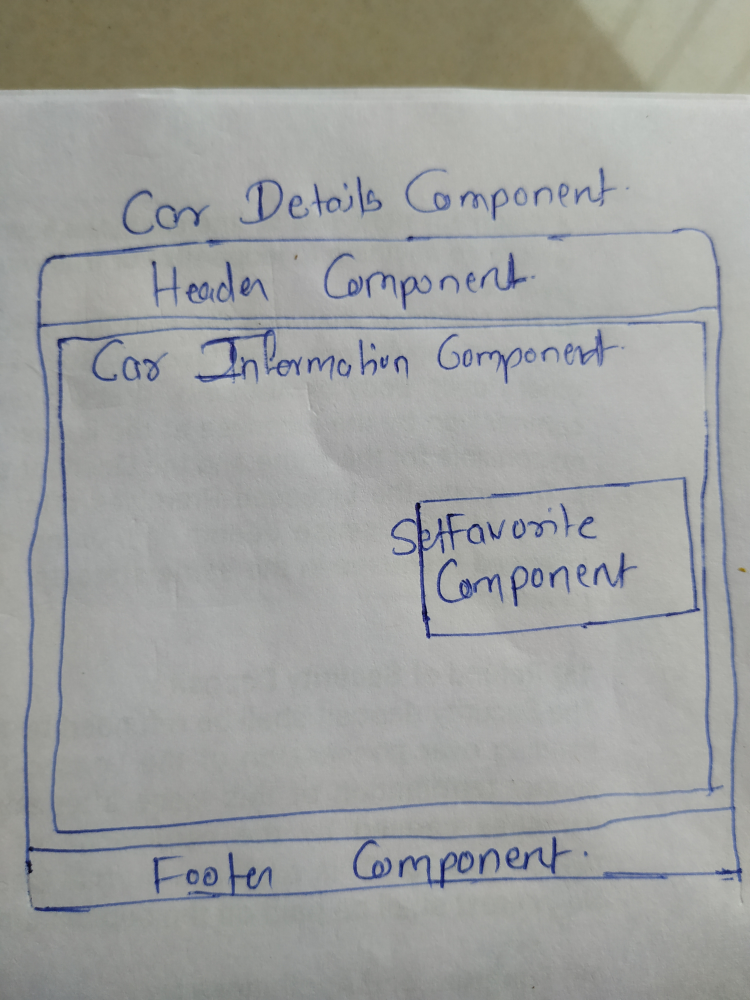 Car Details Component.
Header Component.
Car Information Component.
SetFavorite
Component
Footer Component.